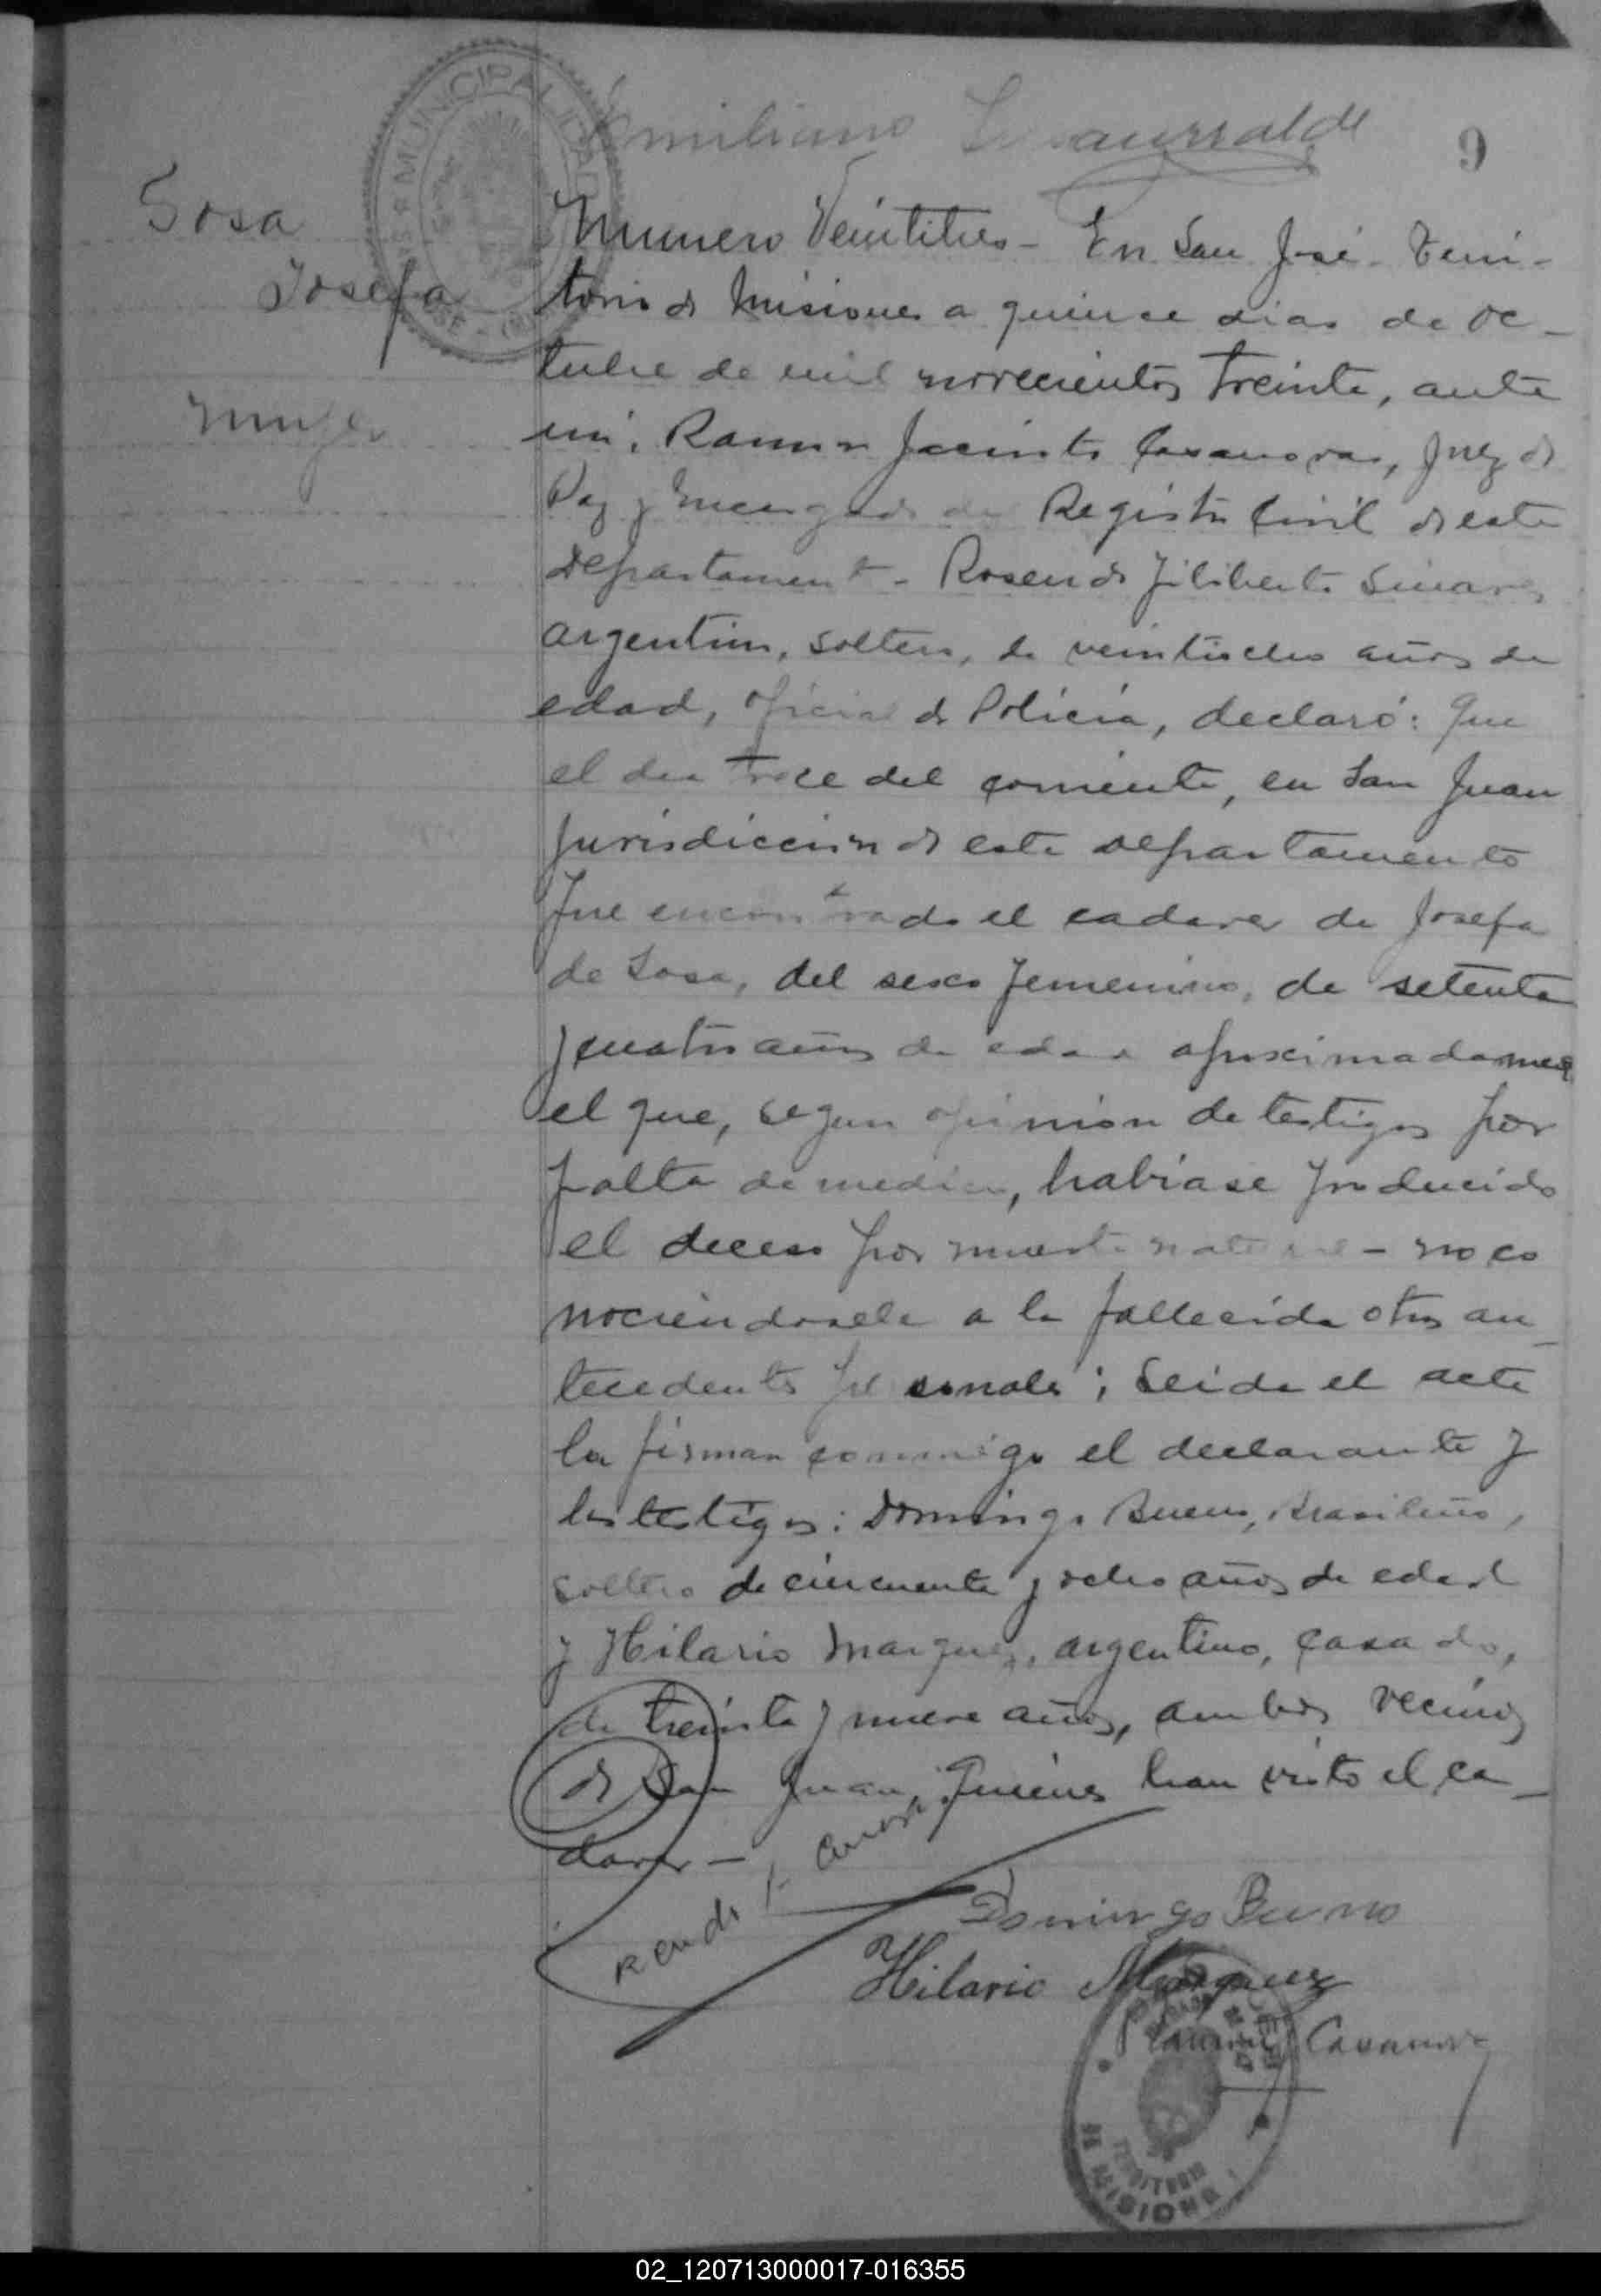 Emiliano
9
Sosa
Josefa
mujer
MUNICIPALIDAD
Numero Veintitres - En San José - Terri-
torio de Misiones a quince dias de Oc-
tubre de mil novecientos treinta, ante
mi, Ramon Jacinto Casanovas, Juez de
Paz y Encargado del Registro Civil de este
Departamento - Rosendo Filiberto
argentino, soltero, de veintiocho años de
edad, oficial de Policia, declaró: Que
el dia trece del corriente, en San Juan
jurisdiccion de este departamento
fue encontrado el cadaver de Josefa
de Sosa, del sexo femenino, de setenta
y cuatro años de edad aproximadamen
el que, segun opinion de testigos por
falta de medico, habiase producido
el deceso por muerte natural - no co
nociendosele a la fallecida otros an-
tecedentes personales; Leida el acta
la firman conmigo el declarante y
los testigos: Domingo Bueno, Brasileño,
soltero de cincuenta y ocho años de edad
y Hilario Marquez, argentino, casado,
de treinta y nueve años, ambos vecinos
de San Juan, quienes han visto el ca-
daver -
Domingo Bueno
Hilario Marquez
Ramon J Casanova
TERRITORIO
DE MISIONES
02_120713000017-016355